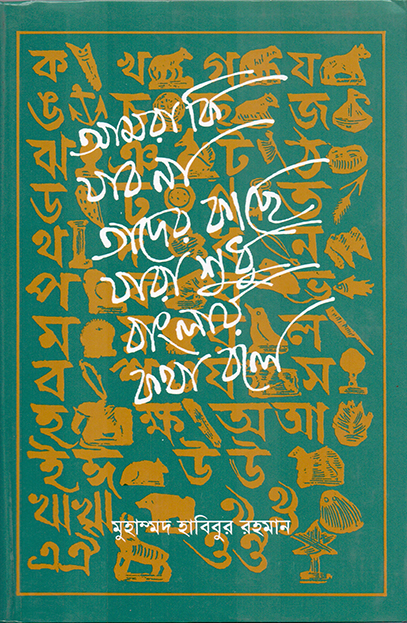 আমরা কি
যাব না
তাদের কাছে
যারা শুধু
বাংলায়
কথা বলে
মুহাম্মদ হাবিবুর রহমান
ক খ গ য
ঙ চ জ
ঝ ঞ ট ঠ
ড ত
থ ন
প
ম ল
ব য স
হ ক্ষ অ আ
ই ঈ উ ঊ
এ ঐ